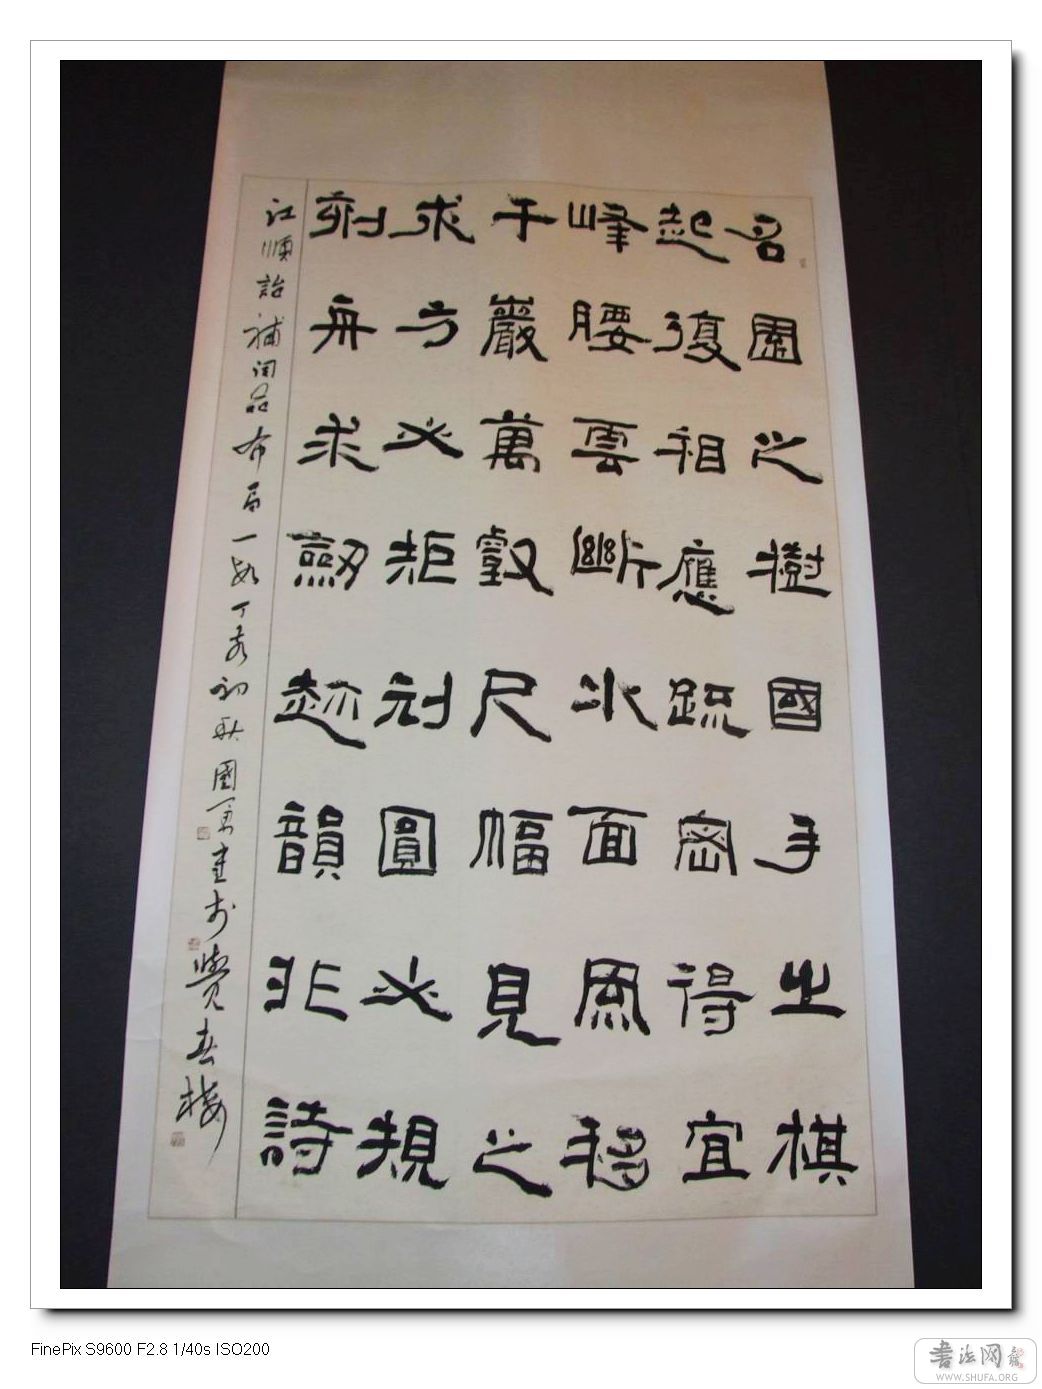 名園之樹國手之棋
起復相應疏密得宜
峰腰雲斷水面風移
千巖萬壑尺幅見之
求方必矩刓圓必規
刻舟求劍趂韻非詩
江順詒補詞品布局一段丁亥初秋國書於覺春
FinePix S9600 F2.8 1/40s ISO200
書法网
WWW.SHUFA.ORG